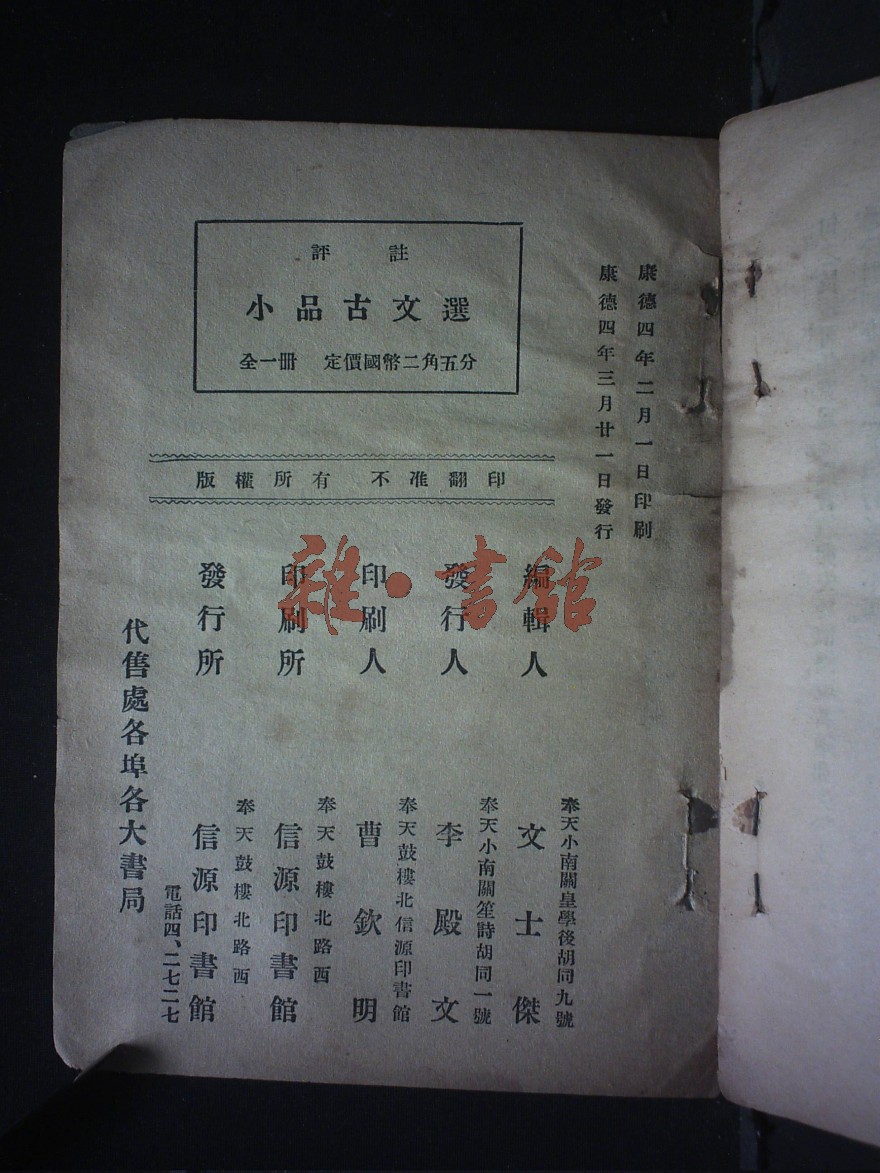 康德四年二月一日印刷
康德四年三月廿一日發行
評註
小品古文選
全一册 定價國幣二角五分
版權所有 不准翻印
編輯人 奉天小南關皇學後胡同九號 文士傑
發行人 奉天小南關笙詩胡同一號 李殿文
印刷人 奉天鼓樓北信源印書館 曹欽明
印刷所 奉天鼓樓北路西 信源印書館
發行所 奉天鼓樓北路西 信源印書館
電話四、二七二七
代售處各埠各大書局
雜·書館